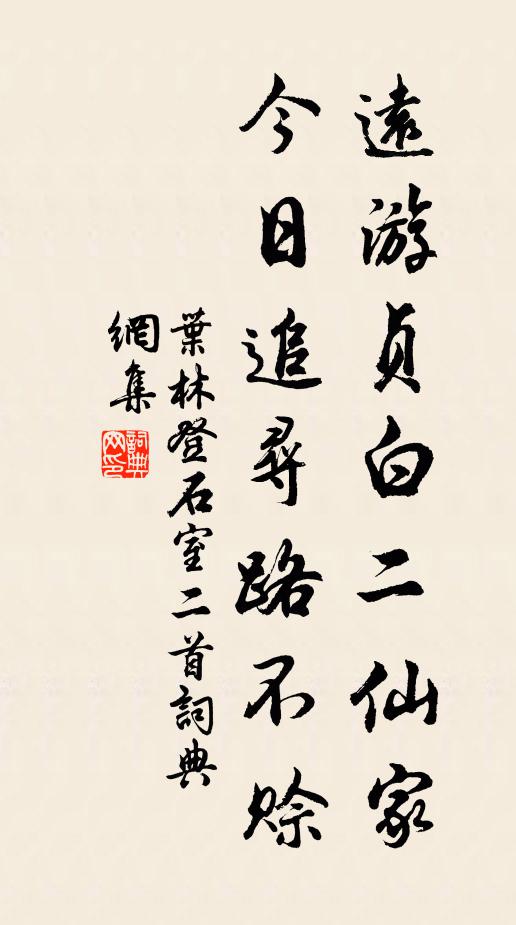 遠游貞白二仙家
今日追尋路不賒
葉林登石室二首詞典
網集
詞典
网印